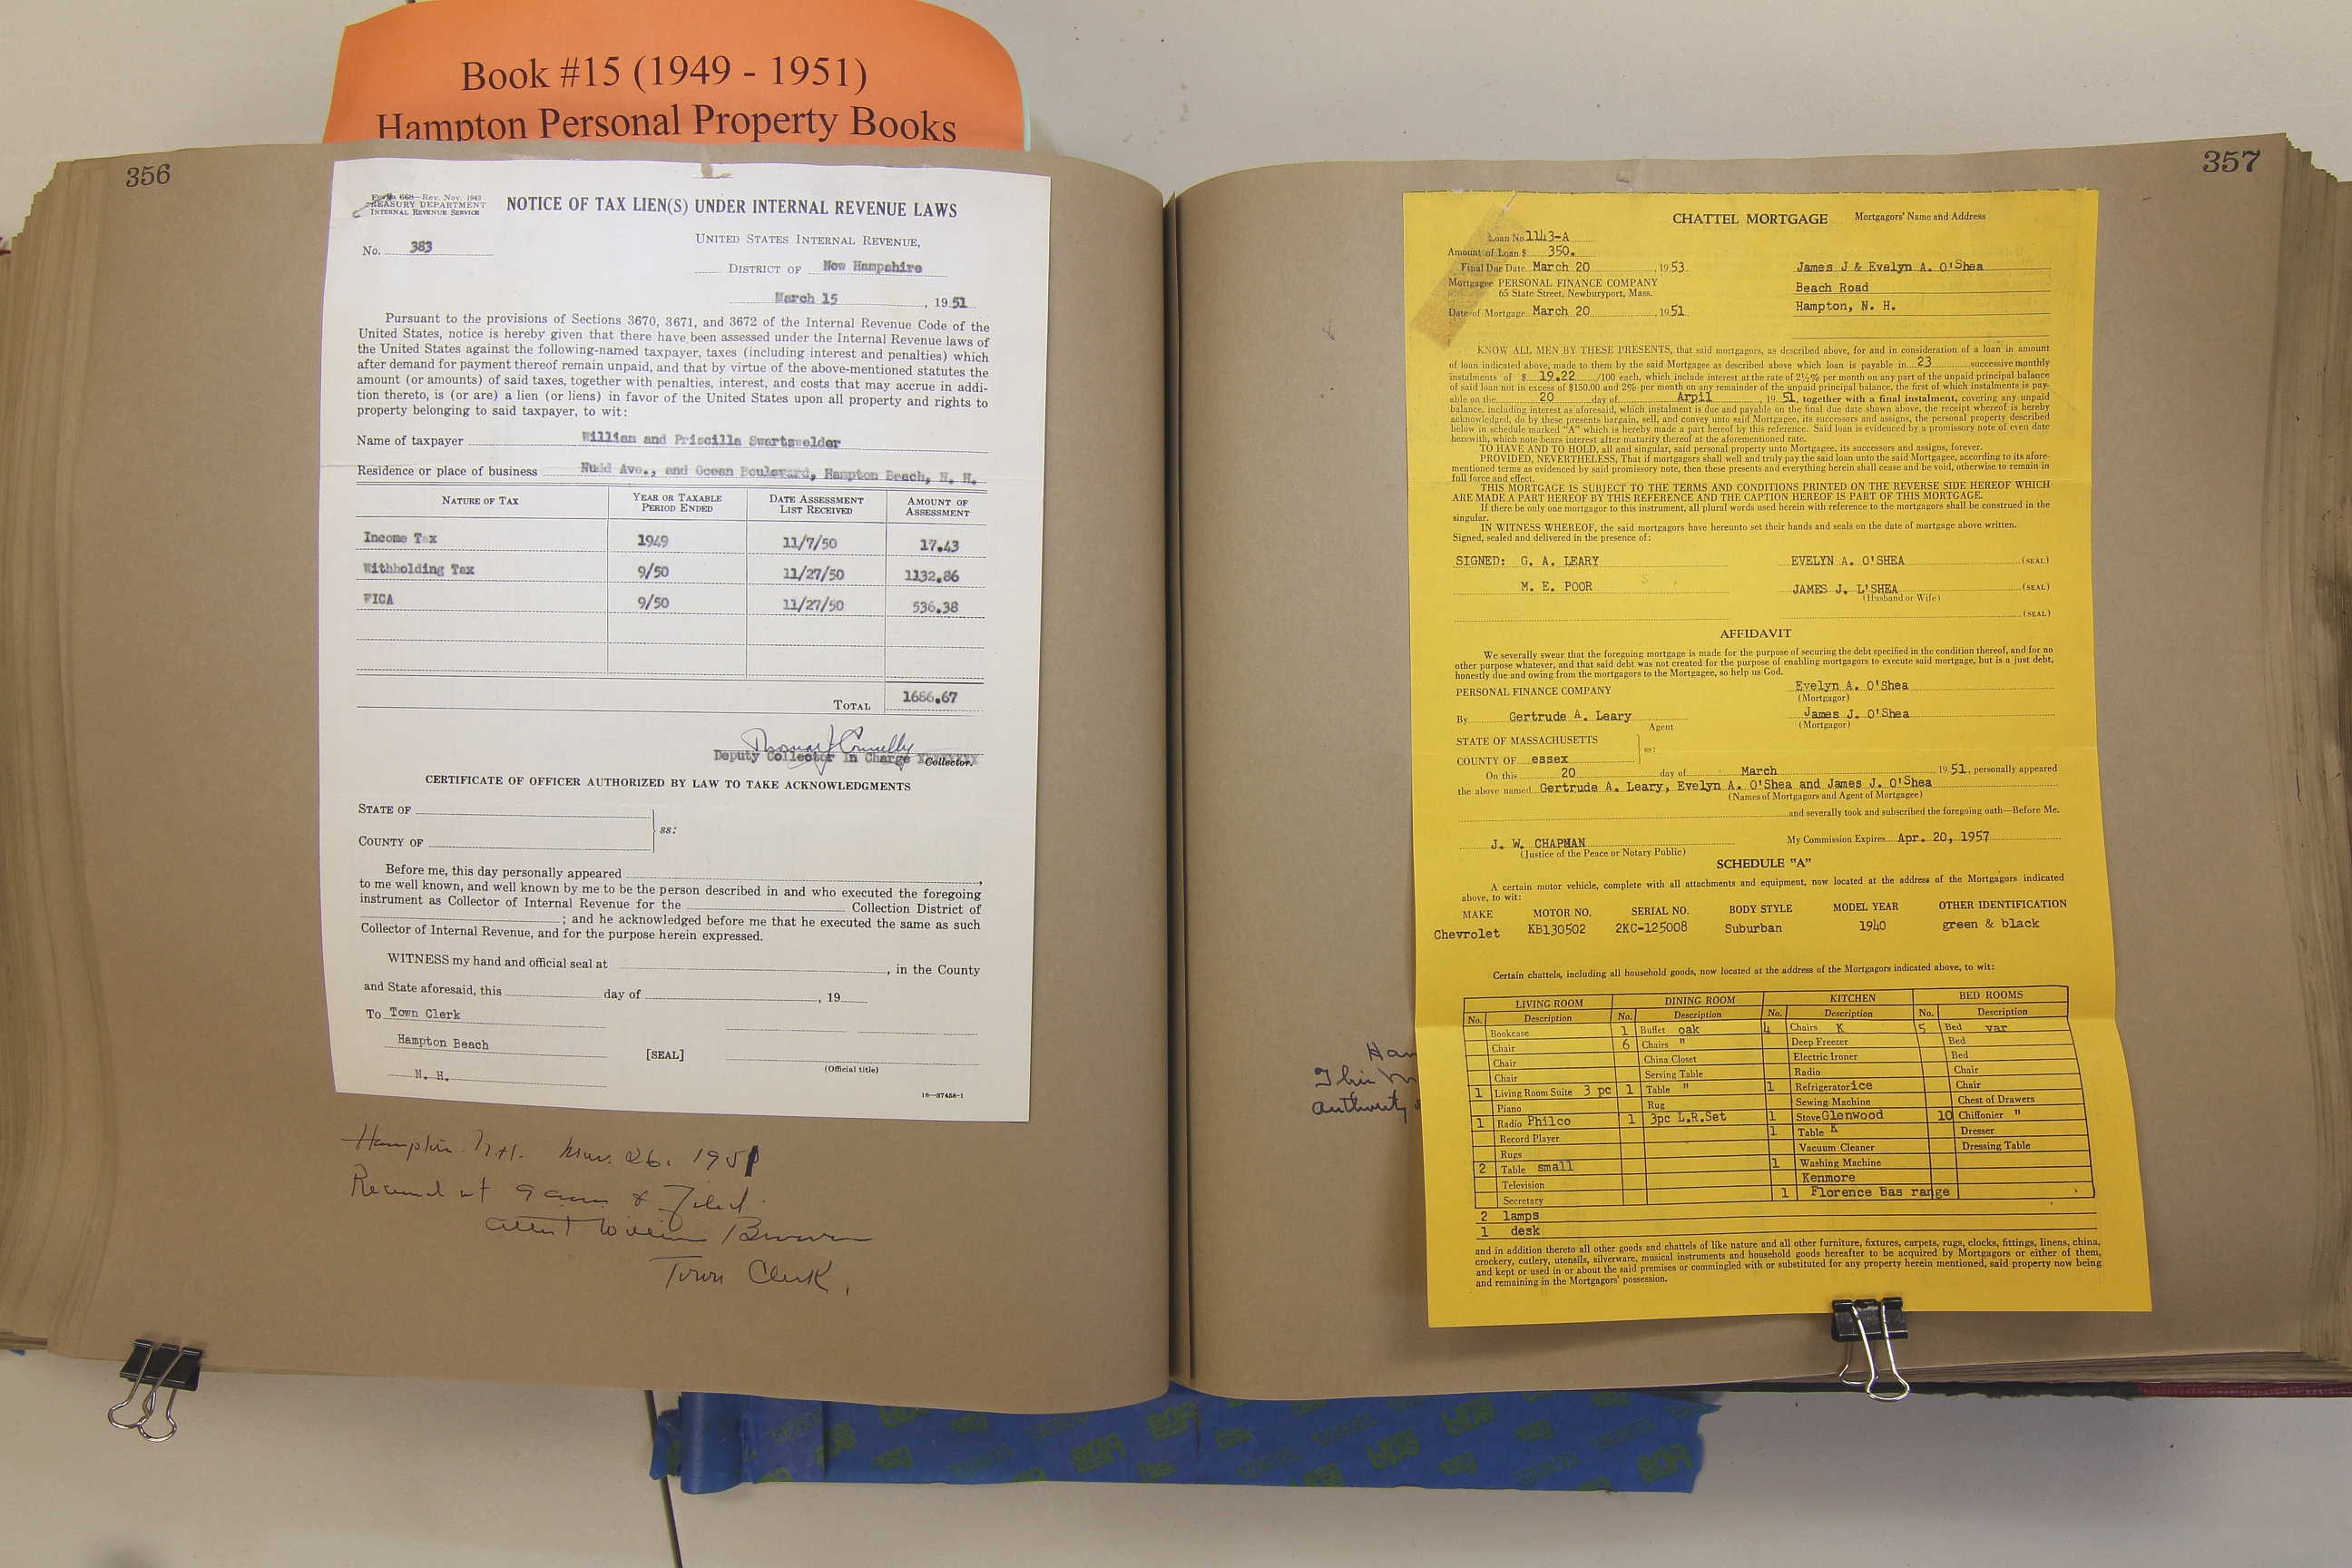 Book #15 (1949 - 1951)
Hampton Personal Property Books
356
Form 668—Rev. Nov. 1943
TREASURY DEPARTMENT
INTERNAL REVENUE SERVICE
NOTICE OF TAX LIEN(S) UNDER INTERNAL REVENUE LAWS
No. 383
UNITED STATES INTERNAL REVENUE,
DISTRICT OF New Hampshire
March 15, 1951
Pursuant to the provisions of Sections 3670, 3671, and 3672 of the Internal Revenue Code of the
United States, notice is hereby given that there have been assessed under the Internal Revenue laws of
the United States against the following-named taxpayer, taxes (including interest and penalties) which
after demand for payment thereof remain unpaid, and that by virtue of the above-mentioned statutes the
amount (or amounts) of said taxes, together with penalties, interest, and costs that may accrue in addi-
tion thereto, is (or are) a lien (or liens) in favor of the United States upon all property and rights to
property belonging to said taxpayer, to wit:
Name of taxpayer William and Priscilla Swartswelder
Residence or place of business Nudd Ave., and Ocean Boulevard, Hampton Beach, N. H.
NATURE OF TAX YEAR OR TAXABLE PERIOD ENDED DATE ASSESSMENT LIST RECEIVED AMOUNT OF ASSESSMENT
Income Tax 1949 11/7/50 17.43
Withholding Tax 9/50 11/27/50 1132.86
FICA 9/50 11/27/50 536.38
TOTAL 1686.67
Thomas J Connelly
Deputy Collector In Charge XXXXXXXX Collector.
CERTIFICATE OF OFFICER AUTHORIZED BY LAW TO TAKE ACKNOWLEDGMENTS
STATE OF
ss:
COUNTY OF
Before me, this day personally appeared ,
to me well known, and well known by me to be the person described in and who executed the foregoing
instrument as Collector of Internal Revenue for the Collection District of
; and he acknowledged before me that he executed the same as such
Collector of Internal Revenue, and for the purpose herein expressed.
WITNESS my hand and official seal at , in the County
and State aforesaid, this day of , 19
To Town Clerk
Hampton Beach
[SEAL]
N. H.
(Official title)
16—37458-1
Hampton N.H. Mar. 26. 1951
Received at 9 am & Filed
attest William Brown
Town Clerk.
357
CHATTEL MORTGAGE Mortgagors' Name and Address
Loan No. 1143-A
Amount of Loan $ 350.
Final Due Date March 20, 1953
James J & Evelyn A. O'Shea
Mortgagee PERSONAL FINANCE COMPANY
Beach Road
65 State Street, Newburyport, Mass.
Hampton, N. H.
Date of Mortgage March 20, 1951
KNOW ALL MEN BY THESE PRESENTS, that said mortgagors, as described above, for and in consideration of a loan in amount
of loan indicated above, made to them by the said Mortgagee as described above which loan is payable in 23 successive monthly
instalments of $ 19.22 /100 each, which include interest at the rate of 2½% per month on any part of the unpaid principal balance
of said loan not in excess of $150.00 and 2% per month on any remainder of the unpaid principal balance, the first of which instalments is pay-
able on the 20 day of Arpil 19 51, together with a final instalment, covering any unpaid
balance, including interest as aforesaid, which instalment is due and payable on the final due date shown above, the receipt whereof is hereby
acknowledged, do by these presents bargain, sell, and convey unto said Mortgagee, its successors and assigns, the personal property described
below in schedule marked "A" which is hereby made a part hereof by this reference. Said loan is evidenced by a promissory note of even date
herewith, which note bears interest after maturity thereof at the aforementioned rate.
TO HAVE AND TO HOLD, all and singular, said personal property unto Mortgagee, its successors and assigns, forever.
PROVIDED, NEVERTHELESS, That if mortgagors shall well and truly pay the said loan unto the said Mortgagee, according to its afore-
mentioned terms as evidenced by said promissory note, then these presents and everything herein shall cease and be void, otherwise to remain in
full force and effect.
THIS MORTGAGE IS SUBJECT TO THE TERMS AND CONDITIONS PRINTED ON THE REVERSE SIDE HEREOF WHICH
ARE MADE A PART HEREOF BY THIS REFERENCE AND THE CAPTION HEREOF IS PART OF THIS MORTGAGE.
If there be only one mortgagor to this instrument, all plural words used herein with reference to the mortgagors shall be construed in the
singular.
IN WITNESS WHEREOF, the said mortgagors have hereunto set their hands and seals on the date of mortgage above written.
Signed, sealed and delivered in the presence of:
SIGNED: G. A. LEARY EVELYN A. O'SHEA (SEAL)
M. E. POOR JAMES J. L'SHEA (SEAL)
(Husband or Wife)
(SEAL)
AFFIDAVIT
We severally swear that the foregoing mortgage is made for the purpose of securing the debt specified in the condition thereof, and for no
other purpose whatever, and that said debt was not created for the purpose of enabling mortgagors to execute said mortgage, but is a just debt,
honestly due and owing from the mortgagors to the Mortgagee, so help us God.
PERSONAL FINANCE COMPANY Evelyn A. O'Shea
(Mortgagor)
By Gertrude A. Leary James J. O'Shea
Agent (Mortgagor)
STATE OF MASSACHUSETTS
ss:
COUNTY OF essex
On this 20 day of March 1951, personally appeared
the above named Gertrude A. Leary, Evelyn A. O'Shea and James J. O'Shea
(Names of Mortgagors and Agent of Mortgagee)
and severally took and subscribed the foregoing oath—Before Me.
J. W. CHAPMAN My Commission Expires Apr. 20, 1957
(Justice of the Peace or Notary Public)
SCHEDULE "A"
A certain motor vehicle, complete with all attachments and equipment, now located at the address of the Mortgagors indicated
above, to wit:
MAKE MOTOR NO. SERIAL NO. BODY STYLE MODEL YEAR OTHER IDENTIFICATION
Chevrolet KB130502 2KC-125008 Suburban 1940 green & black
Certain chattels, including all household goods, now located at the address of the Mortgagors indicated above, to wit:
LIVING ROOM DINING ROOM KITCHEN BED ROOMS
No. Description No. Description No. Description No. Description
Bookcase 1 Buffet oak 4 Chairs K 5 Bed var
Chair 6 Chairs " Deep Freezer Bed
Chair China Closet Electric Ironer Bed
Chair Serving Table Radio Chair
1 Living Room Suite 3 pc 1 Table " 1 Refrigerator ice Chair
Piano Rug Sewing Machine Chest of Drawers
1 Radio Philco 1 3pc L.R.Set 1 Stove Glenwood 10 Chiffonier "
Record Player 1 Table K Dresser
Rugs Vacuum Cleaner Dressing Table
2 Table small 1 Washing Machine
Television Kenmore
Secretary 1 Florence Bas range
2 lamps
1 desk
and in addition thereto all other goods and chattels of like nature and all other furniture, fixtures, carpets, rugs, clocks, fittings, linens, china,
crockery, cutlery, utensils, silverware, musical instruments and household goods hereafter to be acquired by Mortgagors or either of them,
and kept or used in or about the said premises or commingled with or substituted for any property herein mentioned, said property now being
and remaining in the Mortgagors' possession.
Ham
This
authority